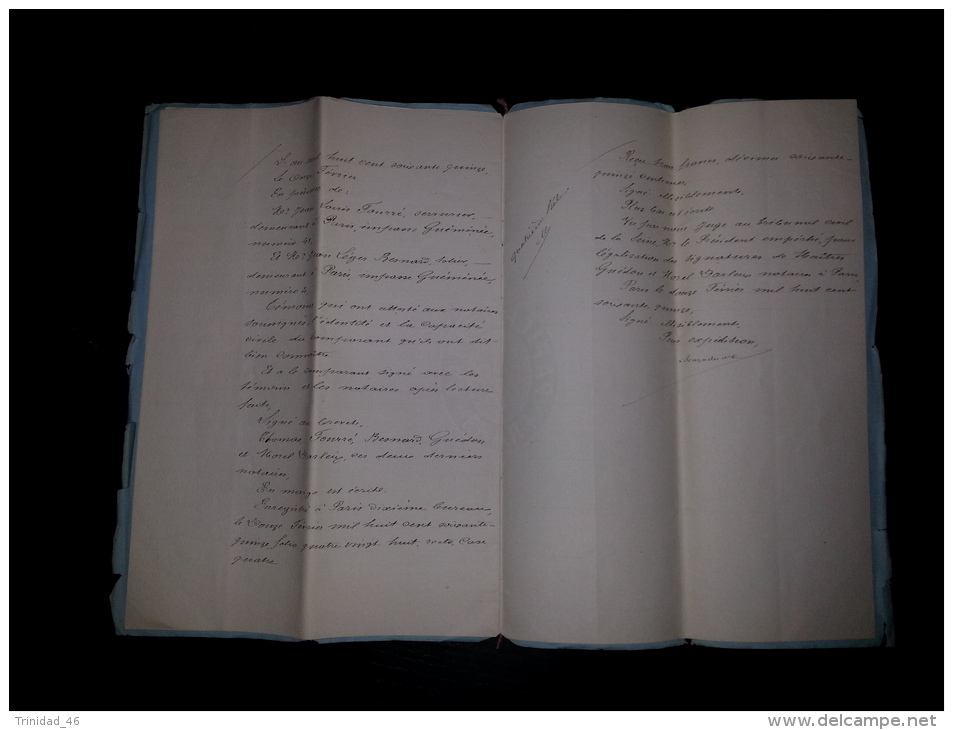 L'an mil huit cent soixante quinze,
le onze Février
En présence de:
Mr Jean Louis Fourré, serrurier,
demeurant à Paris, impasse Guéménée,
numéro 4.
Et Mr Jean Léger Besnard,
demeurant à Paris, impasse Guéménée,
numéro
Témoins qui ont attesté aux notaires
soussignés l'identité et la capacité
civile du comparant qu'ils ont dit
bien connaître
Et a le comparant signé avec les
témoins et les notaires après lecture
faite,
Signé au brevet.
Thomas, Fourré, Besnard, Guédon
et Morel Darleux, ces deux derniers
notaires,
En marge est écrit.
Enregistré à Paris dixième bureau,
le Douze Février mil huit cent soixante-
quinze, folio quatre vingt huit, recto, Case
quatre
Reçu trois francs, décimes soixante-
quinze centimes,
Signé
Plus bas est écrit
Vu par nous Juge au tribunal civil
de la Seine, Mr le Président empêché, pour
légalisation des signatures de Maîtres
Guédon et Morel Darleux notaires à Paris
Paris le douze Février mil huit cent
soixante quinze,
Signé illisiblement,
Pour expédition,
Trinidad_46
www.delcampe.net